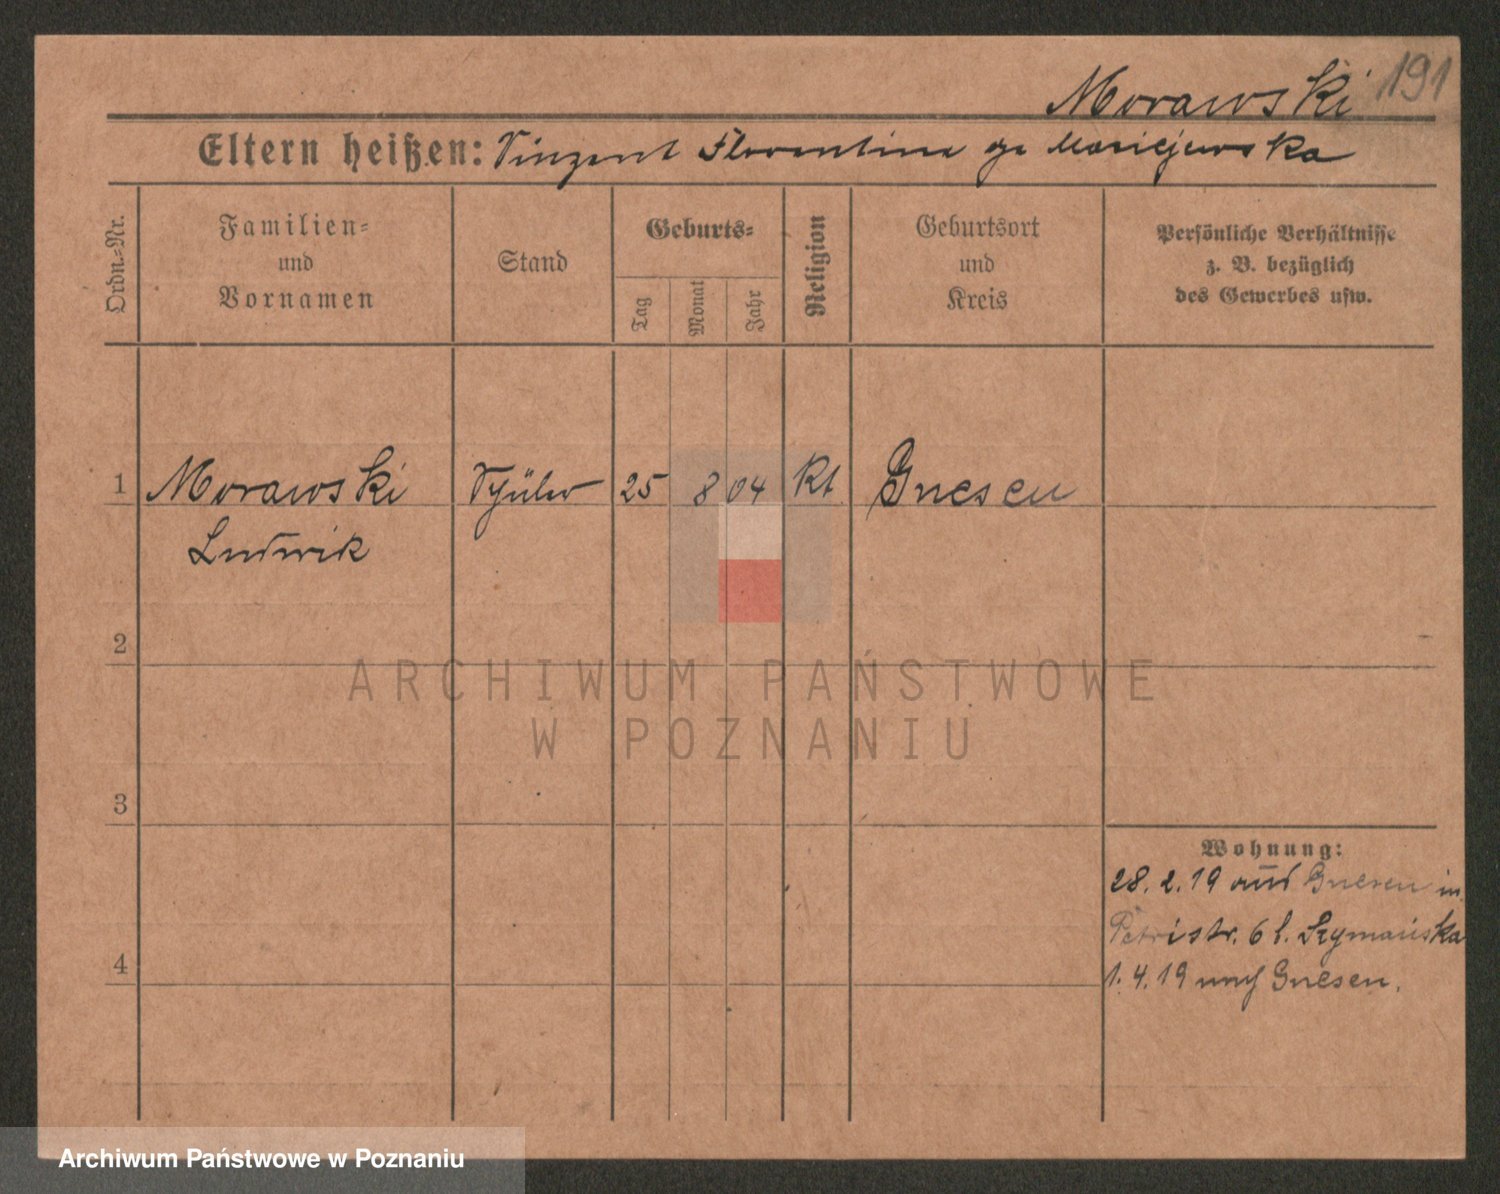 Morawski 191
Eltern heißen: Vinzent Florentine
Ordn.-Nr.
Familien-
und
Vornamen
Stand
Geburts-
Tag
Monat
Jahr
Religion
Geburtsort
und
Kreis
Persönliche Verhältnisse
z. B. bezüglich
des Gewerbes usw.
1 Morawski Schüler 25 8 04 kt Gnesen
Ludwik
2
ARCHIWUM PAŃSTWOWE
W POZNANIU
3
Wohnung:
28. 2. 19 aus Gnesen in
Petristr. 6 b. Szymańska
4
1. 4. 19 nach Gnesen.
Archiwum Państwowe w Poznaniu